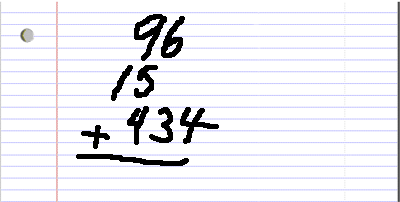 96
15
+ 434